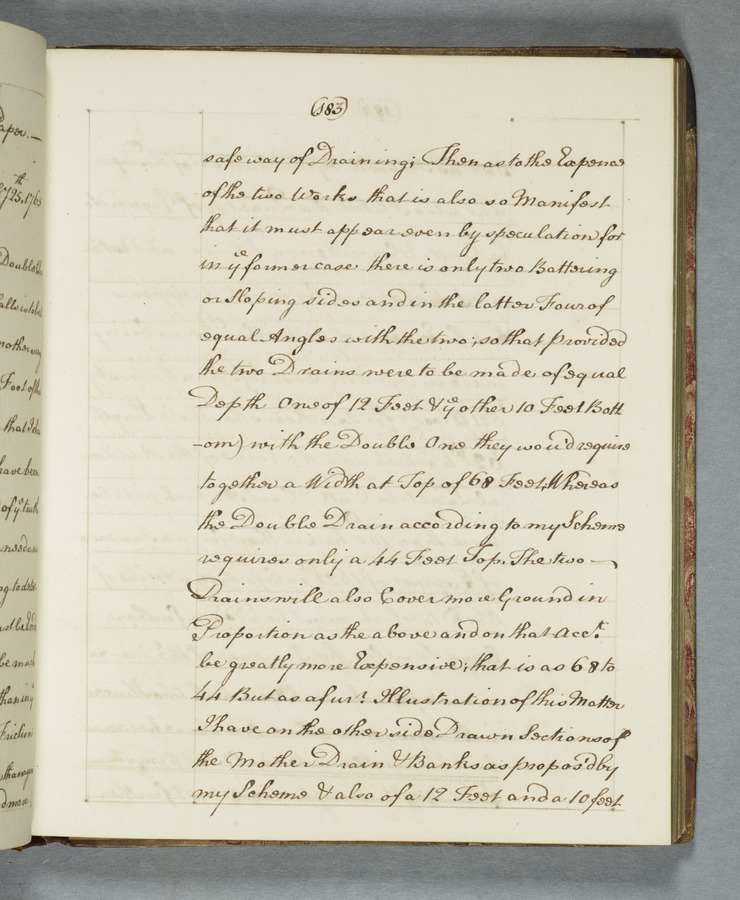 (183)
safe way of Draining; Then as to the Expence
of the two Works that is also so Manifest
that it must appear even by speculation for
in yͤ former case there is only two Battering
or Sloping sides and in the latter Four of
equal Angles with the two; so that provided
the two Drains were to be made of equal
Depth One of 12 Feet & yͤ other 10 Feet Bott
-om) with the Double One they wou'd require
together a Width at Top of 68 Feet, Whereas
the Double Drain according to my Scheme
requires only a 44 Feet Top. The two —
Drains will also Cover more Ground in
Proportion as the above and on that Acc.ᵗ
be greatly more Expensive; that is as 68 to
44 But as a fur.ʳ Illustration of this Matter
I have on the other side Drawn Sections of
the Mother Drain & Banks as propos'd by
my Scheme & also of a 12 Feet and a 10 feet
aper. —
25. 1765
Double
mother way
Foot of the
that I sha
have been
of yͤ
needs
be mad
than in yͤ
Friction